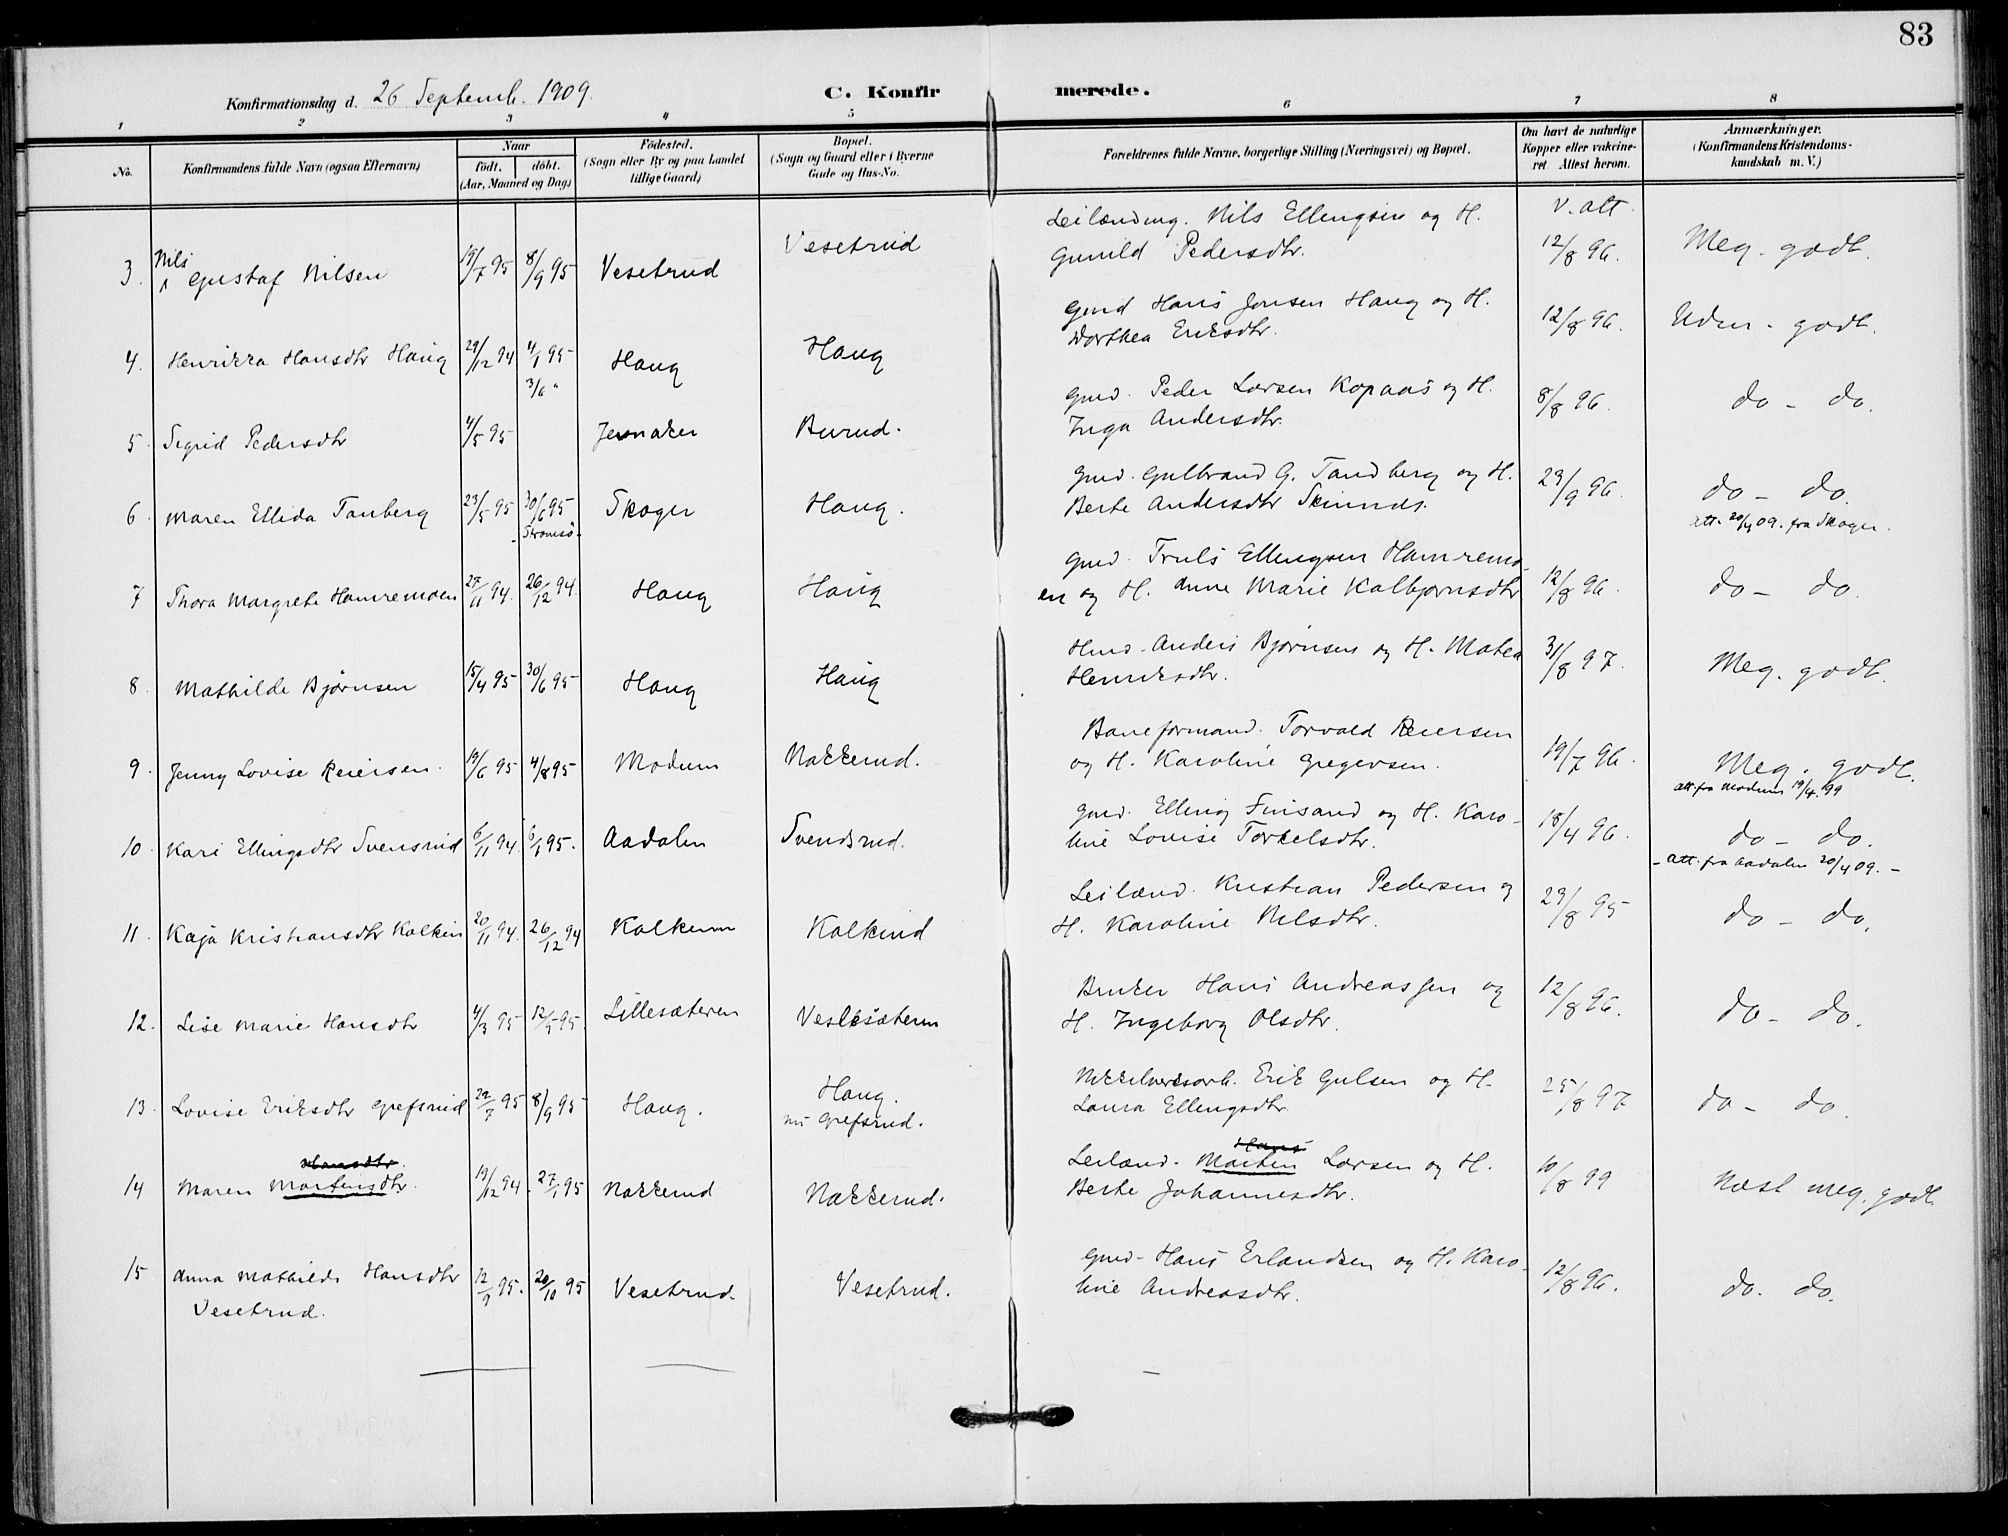 83
Konfirmationsdag d. 26 Septemb. 1909.
C. Konfirmerede.
1 2 3 4 5 6 7 8
No.
Konfirmandens fulde Navn (ogsaa Efternavn)
Naar
født. døbt.
(Aar, Maaned og Dag)
Fødested.
(Sogn eller By og paa Landet
tillige Gaard)
Bopæl.
(Sogn og Gaard eller i Byerne
Gade og Hus-No.
Forældrenes fulde Navne, borgerlige Stilling (Næringsvei) og Bopæl.
Om havt de naturlige
Kopper eller vakcine-
ret. Attest herom.
Anmærkninger.
(Konfirmandens Kristendoms-
kundskab m. V.)
3. Nils Gustaf Nilsen 19/7 95 8/9 95 Vesetrud Vesetrud
Leilænding. Nils Ellingsen og H.
Gunild Pedersdtr.
v. att.
12/8 96. Meg. godt.
4. Henrikka Hansdtr Haug 29/12 94 4/1 95 Haug Haug
Gmd Hans Jonsen Haug og H.
Dorthea Eriksdtr.
12/8 96. Udm. godt.
5. Sigrid Pedersdtr 4/5 95 3/6 " Jevnaker Burud.
Gmd. Peder Larsen Kopaas og H.
Inga Andersdtr.
8/8 96. do - do.
6. Maren Ellida Tanberg 23/5 95 30/6 95 Skoger Haug.
Strømsø
Gmd. Gulbrand G. Tandberg og H.
Berte Andersdtr
29/9 96. do - do.
att. 20/4 09. fra Skoger.
7 Thora Margrethe Hamremoen 27/11 94. 26/12 94. Haug Haug
Gmd. Truls Ellingsen Hamremo-
en og H. Anne Marie Kolbjørnsdtr
12/8 96. do - do.
8. Mathilde Bjørnsen 15/4 95 30/6 95 Haug Haug
Hmd. Anders Bjørnsen og H. Matea
Henriksdtr.
31/8 97. Meg. godt.
9. Jenny Lovise Reiersen. 19/6 95 4/8 95 Modum Nakkerud.
Baneformand. Torvald Reiersen
og H. Karoline Gregersen.
19/7 96. Meg. godt.
att. fra Modum 19/4. 99
10. Kari Ellingsdtr Svensrud 6/11 94. 6/1 95. Aadalen Svendsrud.
Gmd. Elling Finsand og H. Karo-
line Lovise Torkelsdtr.
18/4 96. do - do.
- att. fra Aadalen 20/4 09. -
11. Kaja Kristiansdtr Kolkin 20/11 94. 26/12 94 Kolkinn Kolkind
Leilænd. Kristian Pedersen og
H. Karoline Nilsdtr.
29/8 95 do - do.
12. Lise Marie Hansdtr 4/3 95 12/5 95. Lillesæteren Veslesæteren
Bruker Hans Andreassen og
H. Ingeborg Olsdtr.
12/8 96. do - do.
13. Lovise Eriksdtr Grefsrud 22/7 95 8/9 95 Haug. Haug.
nu Grefsrud.
Nikkelverksarb. Erik Gulsen og H.
Laura Ellingsdtr
25/8 97 do - do.
14 Maren Hansdtr. Martensdtr. 19/12 94. 27/1 95 Nakkerud Nakkerud.
Leilænd. Hans Marten Larsen og H.
Berte Johannesdtr.
10/8 99 Næst meg. godt.
15 Anna Mathilde Hansdtr 12/9 95. 20/10 95 Vesetrud. Vesetrud.
Vesetrud.
Gmd. Hans Erlandsen og H. Karo-
line Andreasdtr.
12/8 96. do. do.